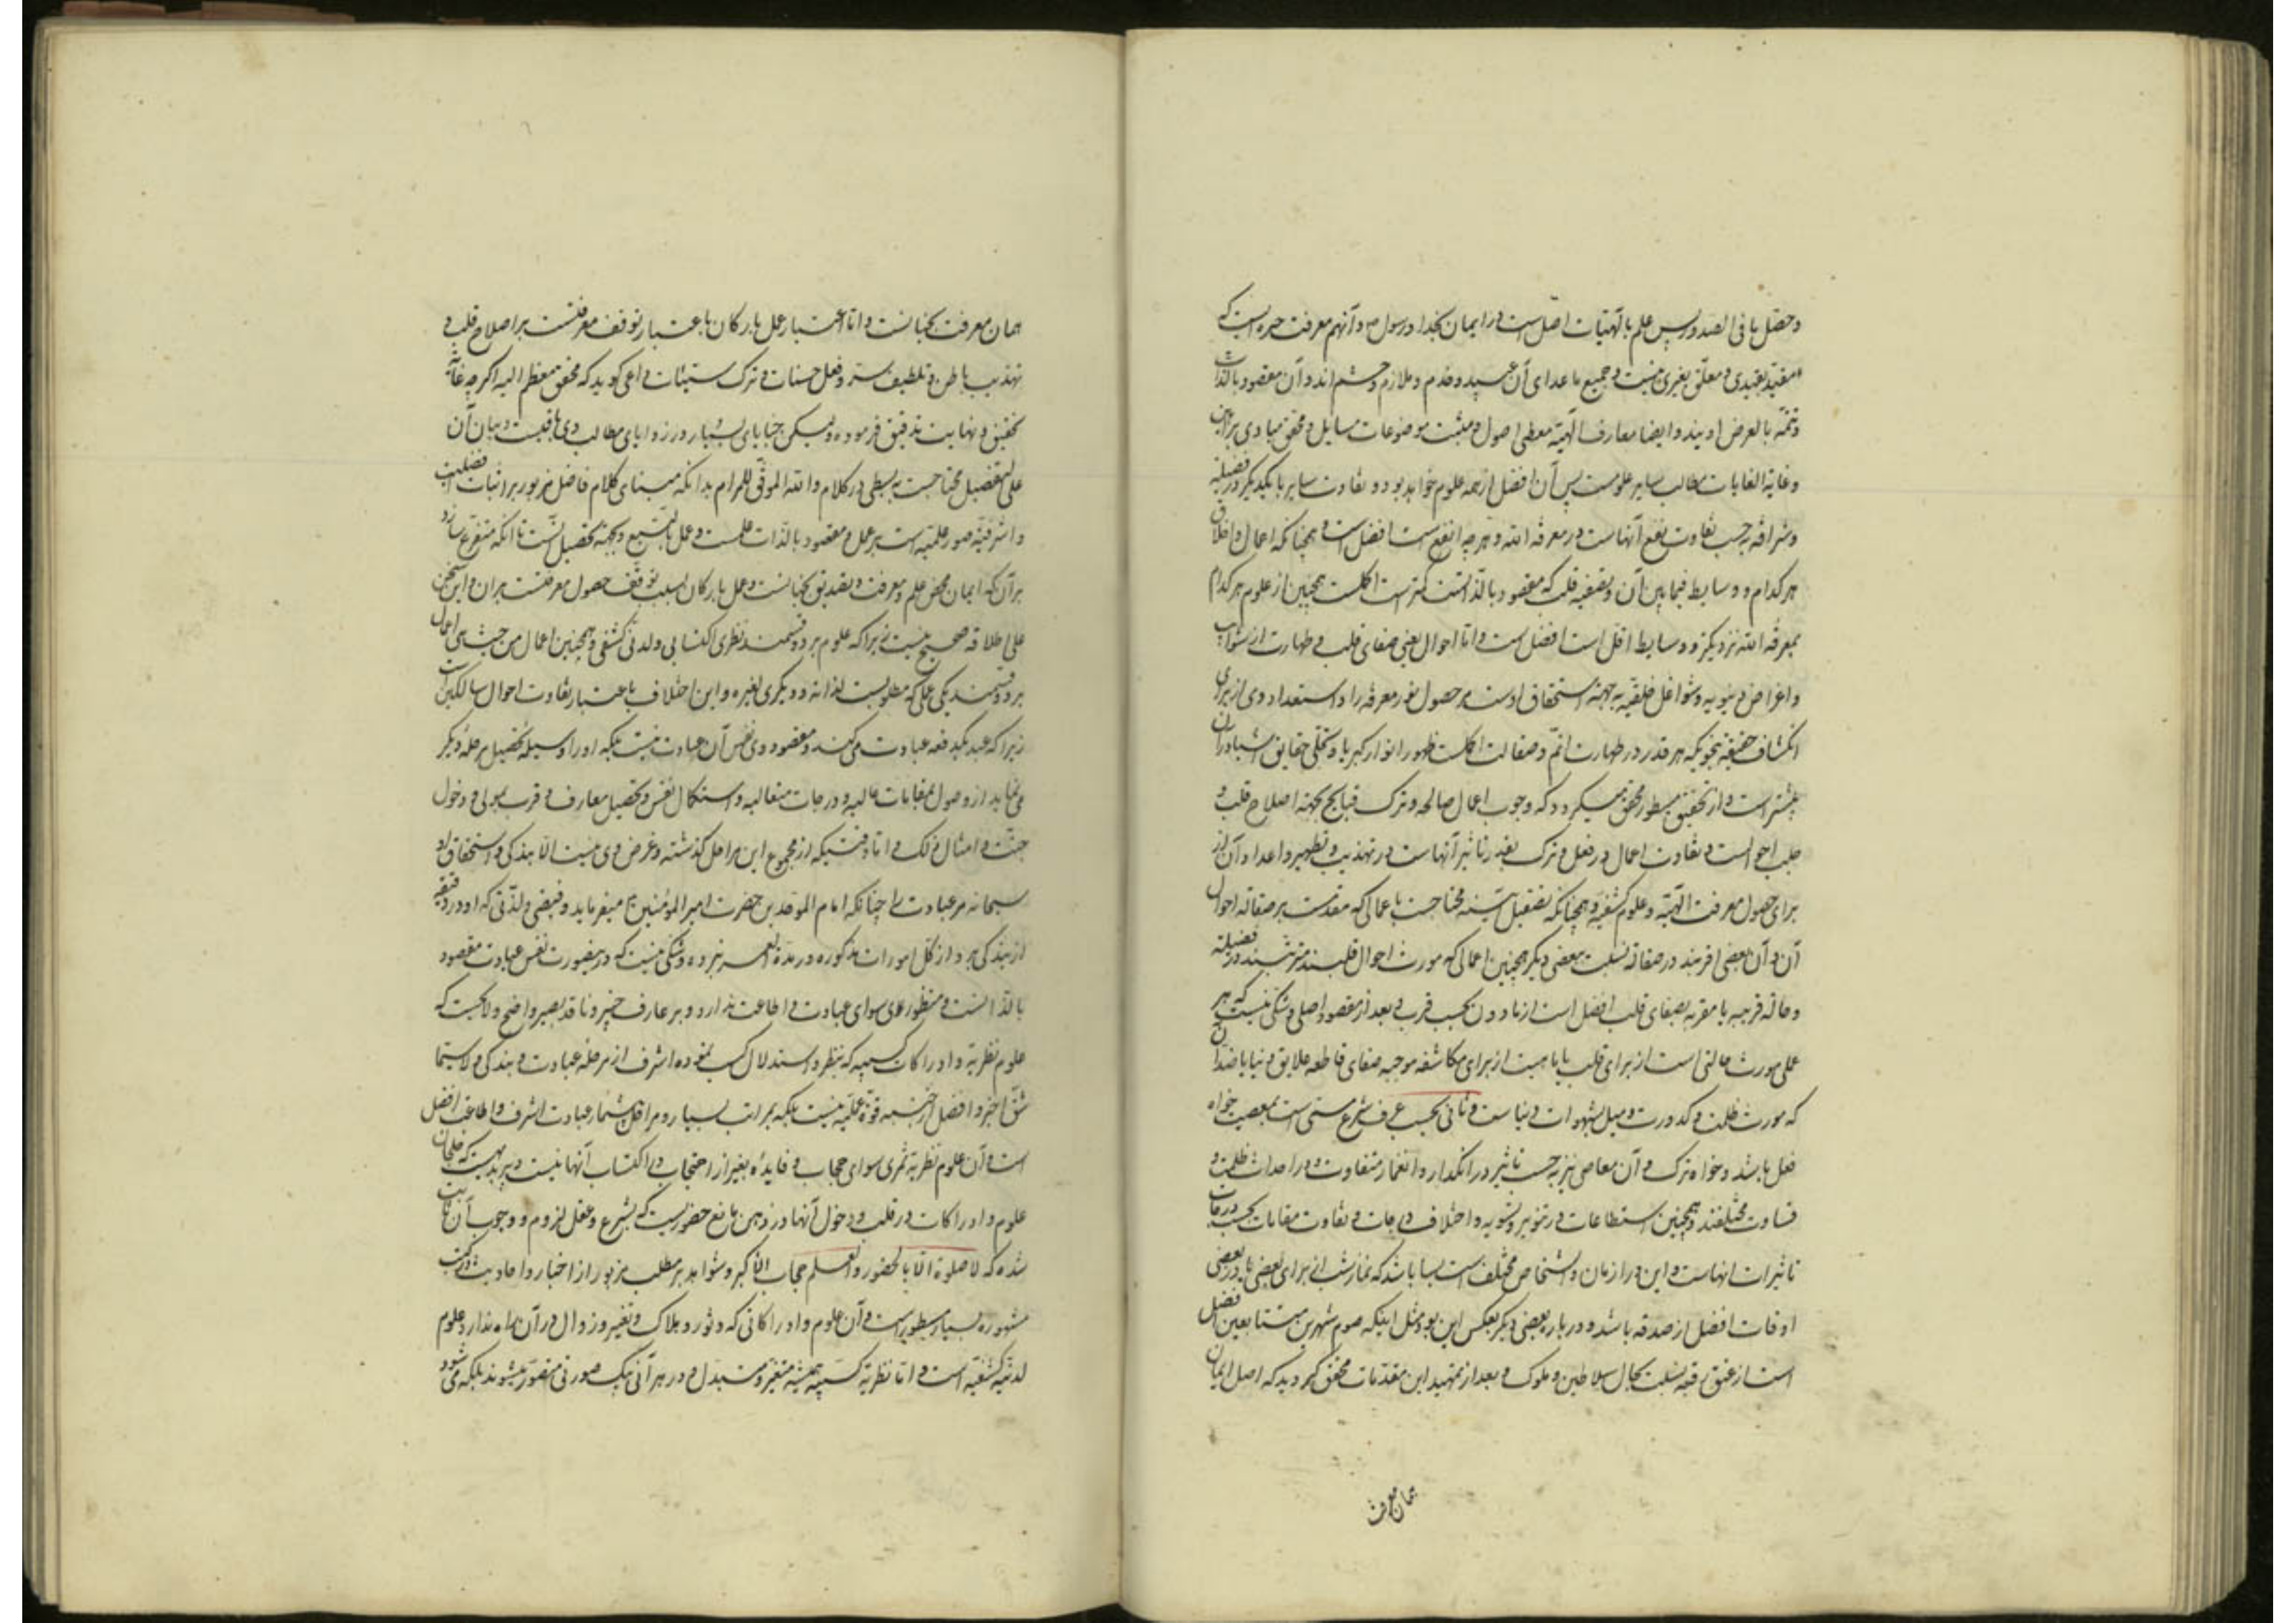 و حصل ما فی الصدور پس علم بالهیات اصل است در ایمان بخدا و رسول و آنهم معرفت حره ایست که
مقید بقیدی و معلق بغیری نیست و جمیع ماعدای آن عبید و خدم و ملازم و حشم اند و آن مقصود بالذات
و تتمه بالعرض اویند و ایضا معارف الهیه معطی اصول و مثبت موضوعات مسایل و محقق مبادی براهین
و غایة الغایات مطالب سایر علومست پس آن افضل از همه علوم خواهد بود و تفاوت سایر با یکدیگر در فضیلة
و شرافه بر حسب تفاوت نفع آنهاست در معرفه الله و هر چه انفع است افضل است همچنانکه اعمال و اخلاق
هر کدام و وسایط فیمابین آن و تصفیه قلب که مقصود بالذاتست کمتر است اکملست همچنین از علوم هر کدام
بمعرفه الله نزدیکتر و وسایط اقل است افضل است و اما احوال یعنی صفای قلب و طهارت از شوایب
و اغراض دنیویه و شواغل خلقیه بجهة استحقاق اوست بر حصول نور معرفه را و استعداد وی از برای
انکشاف حقیقة بنحویکه هر قدر در طهارت اتم و صقالت اکملست ظهور انوار کبریا و تجلی حقایق اشیا در آن
بیشتر است و از تحقیق مسطور محقق میگردد که وجوب اعمال صالحه و ترک قبایح بجهة اصلاح قلب و
جلب احوالست و تفاوت اعمال در فعل و ترک بقدر تاثیر آنهاست در تهذیب و تطهیر و اعداد آن از
برای حصول معرفت الهیه و علوم کشفیه و همچنانکه تصقیل آینه محتاجست باعمالی که مقدمست بر صقاله احوال
آن و آن بعضی اقربند در صقاله نسبت ببعضی دیگر همچنین اعمالی که مورث احوال قلبند مترتبند در فضیلة
و حاله قریبه یا مقربه بصفای قلب افضل است از مادون بحسب قرب و بعد از مقصود اصلی و شکی نیست که هر
عملی مورث حالتی است از برای قلب یا جاهبست از برای مکاشفه موجبه صفای قاطعه علایق دنیا یا ضد آن
که مورث ظلمت و کدورت و میل بشهوات دنیاست و ثانی بحسب عرف شرع مسمی است بمعصیت خواه
فعل باشد و خواه ترک و آن معاصی نیز بر حسب تاثیر در انکدار و انغمار متفاوت و در احداث ظلمت و
قساوت مختلفند و همچنین استطاعات در تنویر و تسویه و اختلاف درجات و تفاوت مقامات بحسب درجات
تاثیرات انهاست و این در ازمان و اشخاص مختلف است بسا باشد که نماز شب از برای بعضی یا در بعضی
اوقات افضل از صدقه باشد و در باره بعضی دیگر بعکس این بود مثل اینکه صوم شهرین متتابعین افضل
است از عتق رقبه نسبت بحال سلاطین و ملوک و بعد از تمهید این مقدمات محقق گردید که اصل ایمان
همان معرفت
همان معرفت بجنانست و اما اعتبار عمل بارکان باعتبار توقف معرفتست بر اصلاح قلب و
تهذیب باطن و تلطیف سر و فعل حسنات و ترک سیئات داعی کوید که محقق معظم الیه اگر چه غایة
تحقیق و نهایت تدقیق فرموده ولیکن خبایای بسیار در زوایای مطالب وی باقیست و بیان آن
علی التفصیل محتاجست ببسطی در کلام والله الموفق للمرام بدانکه مبنای کلام فاضل مزبور بر اثبات افضلیت
و اشرفیة صور علمیه است بر عمل و مقصود بالذات علمست و عمل بالتبع و بجهة تحصیل آنست تا آنکه متفرع سازد
بر آن که ایمان محض علم و معرفت و تصدیق بجنانست و عمل بارکان بسبب توقف حصول معرفتست بران و این سخن
علی اطلاقه صحیح نیست زیرا که علوم بر دو قسمند نظری اکتسابی و لدنی کشفی و همچنین اعمال من حیث هی اعمال
بر دو قسمند یکی عملی که مطلوبست لذاته و دیگری لغیره و این اختلاف باعتبار تفاوت احوال سالکین است
زیرا که عبد یکدفعه عبادت می کند و مقصود وی نفس آن عبادت نیست بلکه او را وسیله تحصیل مرحله دیگر
می نماید از وصول بمقامات عالیه و درجات متعالیه و استکمال نفس و تحصیل معارف و قرب بمولی و دخول
جنت و امثال ذلک و اما وقتیکه از مجموع این مراحل گذشته و غرض وی نیست الا بندگی و استحقاق او
سبحانه مر عبادت را چنانکه امام الموحدین حضرت امیر المؤمنین ع میفرماید و فیضی و لذتی که او در دقیقه
از بندگی برد از کل امورات مذکوره در مدة العمر نبرده و شکی نیست که در اینصورت نفس عبادت مقصود
بالذاتست و منظور وی سوای عبادت و اطاعت ندارد و بر عارف خبیر و ناقد بصیر واضح و لایحست که
علوم نظریه و ادراکات کسبیه که بنظر و استدلال کسب نموده اشرف از مرحله عبادت و بندگی و لاسیما
شق اخیر و افضل از مرتبه قوة علمیه نیست بلکه بمراتب بسیار و مراحل بیشمار عبادت اشرف و اطاعت افضل
است و آن علوم نظریه ثمری سوای حجاب و فایده بغیر از احتجاب در اکتساب آنها نیست و بدیهیست که خلجان
علوم و ادراکات در قلب و دخول آنها در ذهن مانع حضوریست که بشرع و عقل لزوم و وجوب آن ثابت
شده که لا صلوة الا بالحضور والعلم حجاب الاکبر و شواهد بر مطلب مزبور از اخبار و احادیث در کتب
مشهوره بسیار مسطور است و آن علوم و ادراکاتی که دثور و هلاک و تغییر و زوال در آن راه ندارد علوم
لدنیه کشفیه است و اما نظریه کسبیه همیشه متغیر و متبدل و در هر آنی بیک صورتی متصور میشوند بلکه می شود